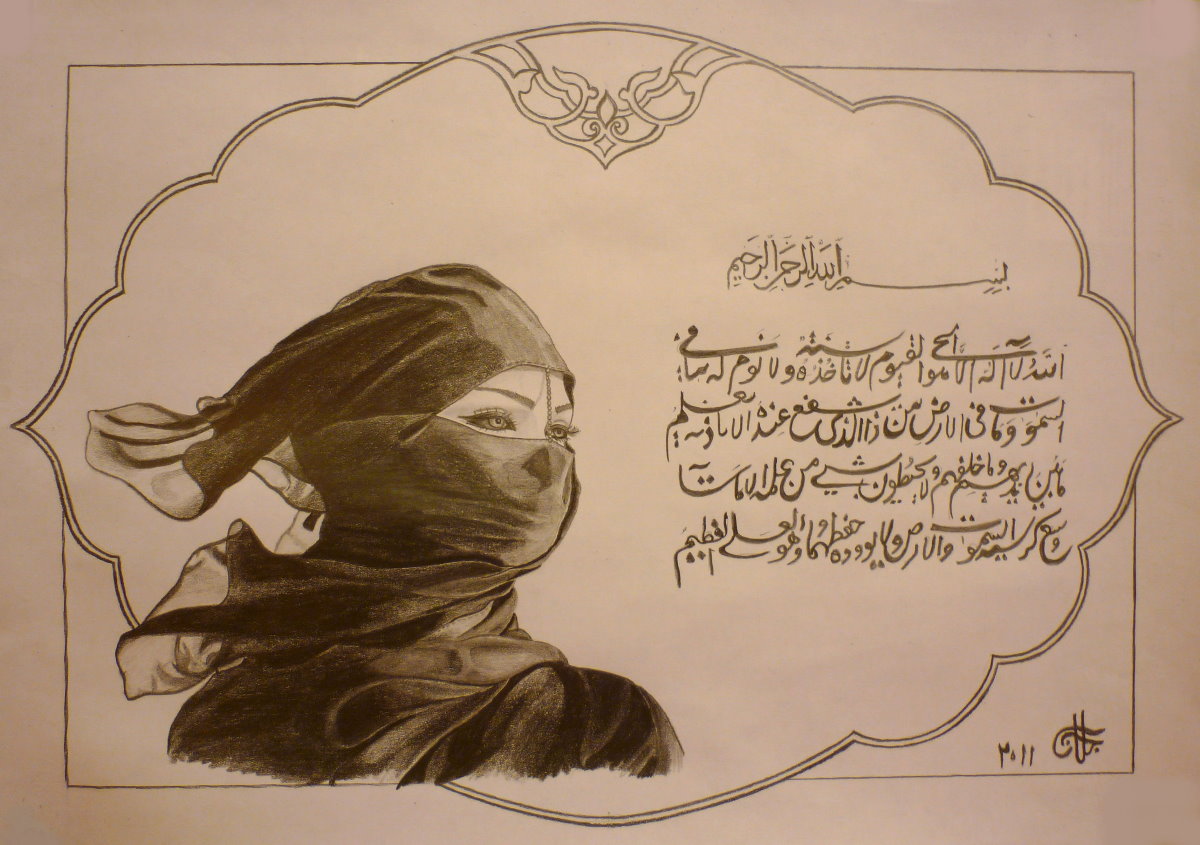 بسم الله الرحمن الرحيم
الله لا اله الا هو الحي القيوم لا تاخذه سنة ولا نوم له ما في
السموت وما فى الارض من ذا الذى يشفع عنده الا باذنه يعلم
ما بين ايديهم وما خلفهم ولا يحيطون بشيء من علمه الا بما شآء
وسع كرسيه السموت والارض ولا يووده حفظهما وهو العلي العظيم
٢٠١١